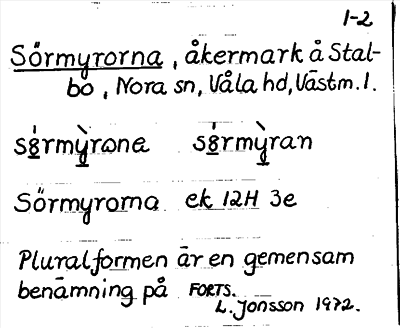 1-2
Sörmyrorna, åkermark å Stal-
bo, Nora sn, Våla hd, Västm. l.
sǿrmỳrơne sǿrmỳran
Sörmyrorna ek 12H 3e
Pluralformen är en gemensam
benämning på FORTS.
L. Jonsson 1972.